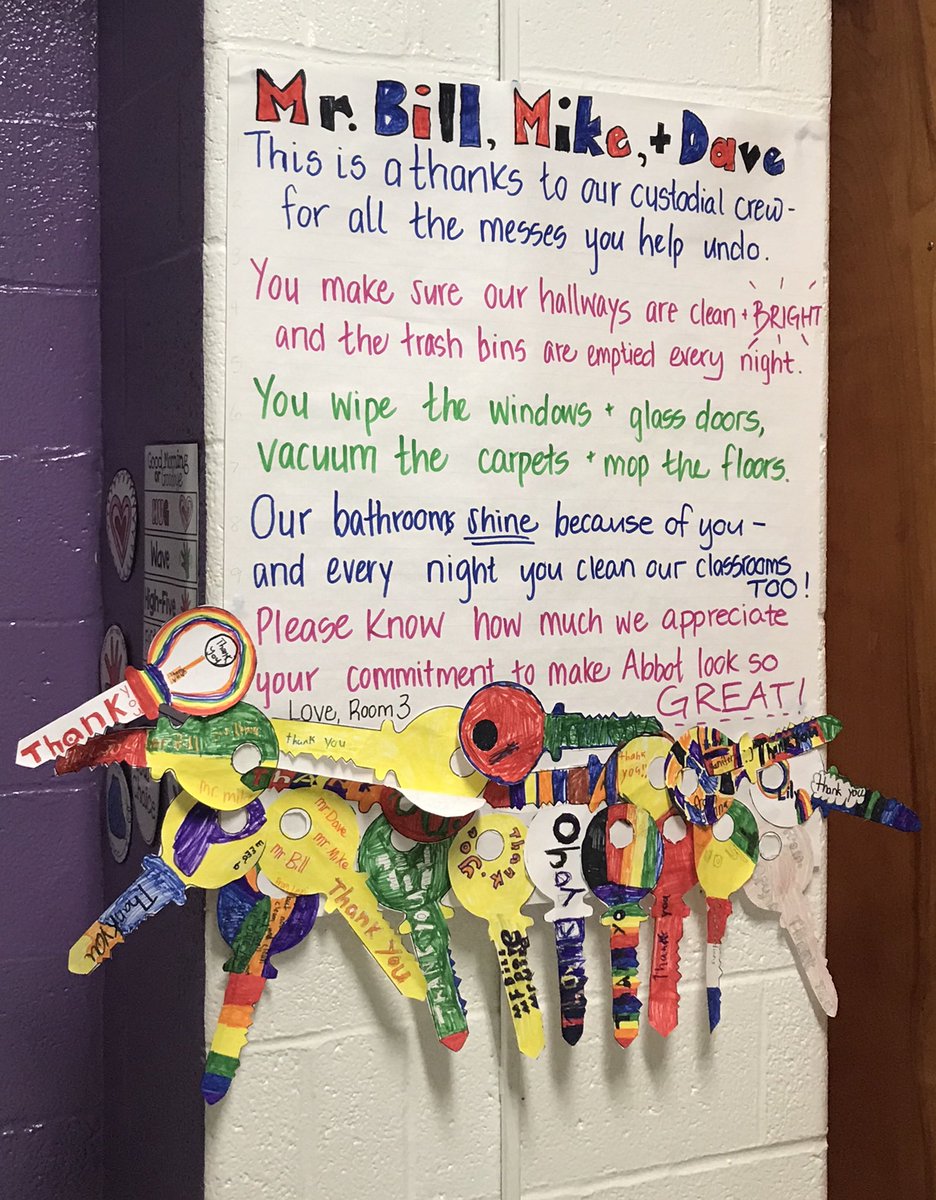 Mr. Bill, Mike, + Dave
This is a thanks to our custodial crew -
for all the messes you help undo.
You make sure our hallways are clean + BRIGHT
and the trash bins are emptied every night.
You wipe the windows + glass doors,
vacuum the carpets + mop the floors.
Our bathrooms shine because of you -
and every night you clean our classrooms
TOO!
Please Know how much we appreciate
your commitment to make Abbot look so
GREAT!
Love, Room 3
Good Morning
or Goodbye
Wave
High-Five
Thank you
Thank
you
thank you
Mr Bill
Mr. mike
thank
you!!
Thank you
Lily
thank you
Mr Dave
Mr. Mike
Mr Bill
Thank you
Thank you
Thank
you
Thank you